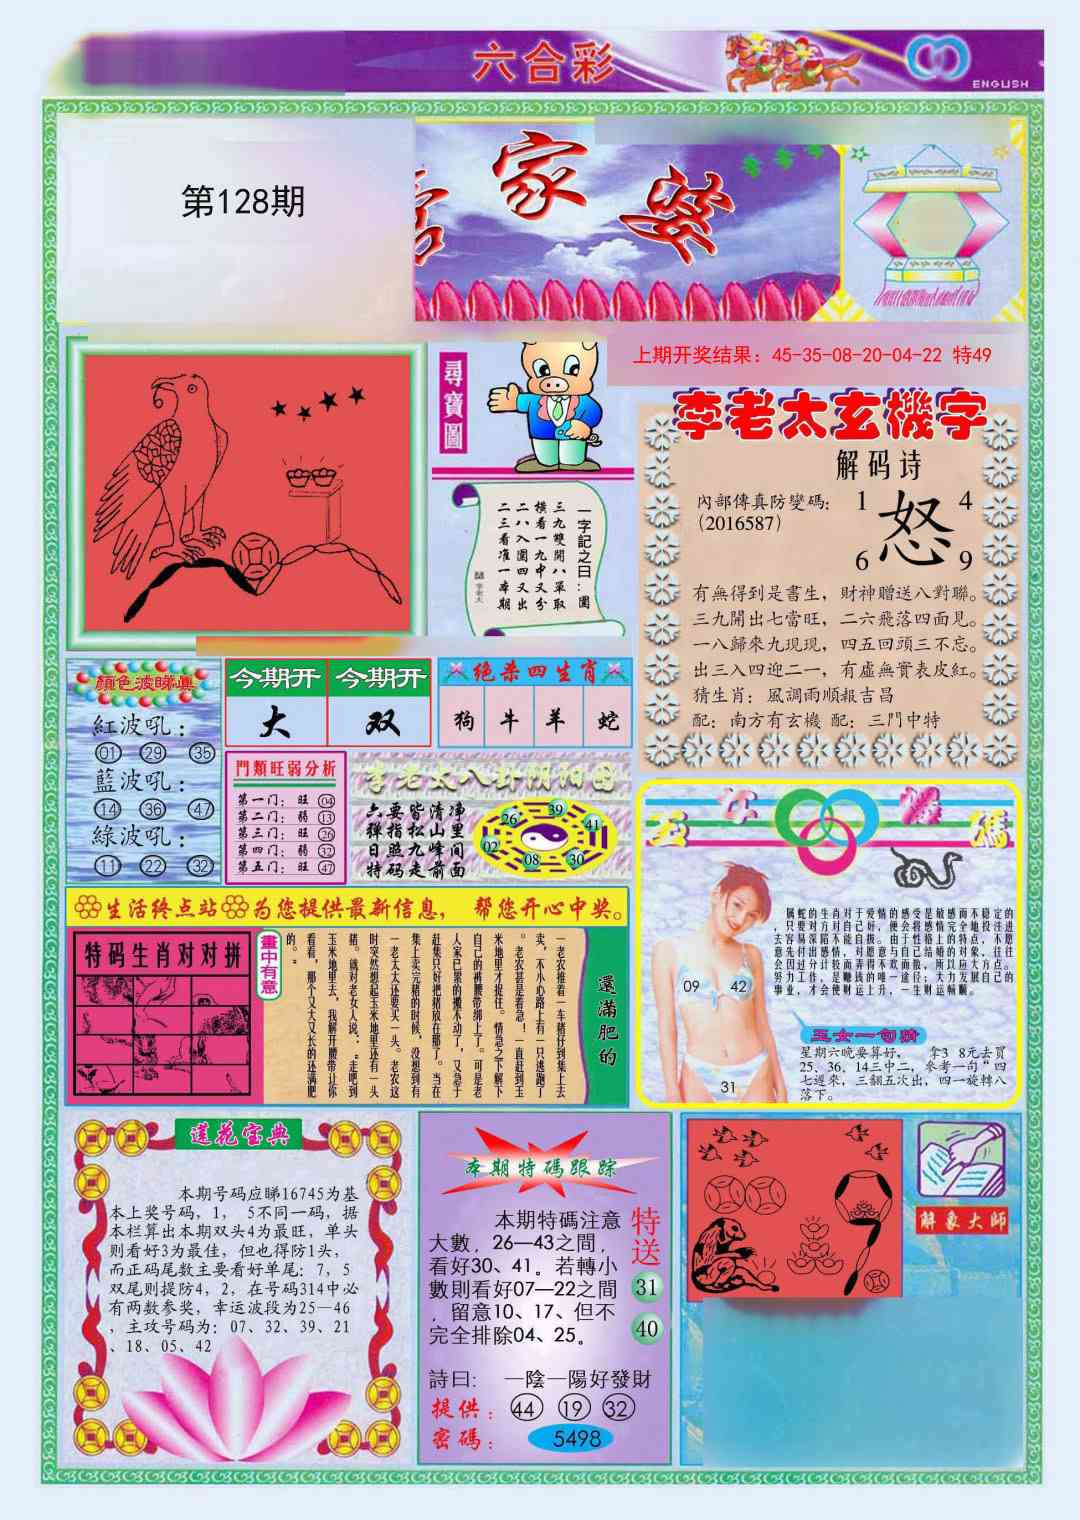 六合彩
ENGLISH
第128期
家婆
上期开奖结果：45-35-08-20-04-22 特49
尋寶圖
一字記之曰：圖
三九雙開八單取
横看一九中又分
二八入圍四又出
二三看准一本期
李老太玄機字
解码诗
內部傳真防變碼：
（2016587）
1 4
怒
6 9
有無得到是書生，財神贈送八對聯。
三九開出七當旺，二六飛落四面見。
一八歸來九現現，四五回頭三不忘。
出三入四迎二一，有虛無實表皮紅。
猜生肖：風調雨順報吉昌
配：南方有玄機 配：三門中特
顏色波睇真
紅波吼：
01 29 35
藍波吼：
14 36 47
綠波吼：
11 22 32
今期开 今期开
大 双
绝杀四生肖
狗 牛 羊 蛇
門類旺弱分析
第一门：旺 04
第二门：弱 13
第三门：旺 26
第四门：弱 32
第五门：旺 47
李老太八卦阴阳图
六要皆清净
禅指松山里
日照九峰间
特码走前面
26 39 41
02 08 30
五女傳碼
属蛇的生肖对于爱情的感受是敏感而不稳定的
，只要对方对自己好，便会将感情完全地投注进
去容易深陷不能自拔。由于性格上的特点，不愿
意先付出感情，对愿意与自己结婚的对象，往往
会因过分计较而弄得不欢而散，所以应大方点。
努力工作，是赚钱的唯一途径；大力发展自己的
事业，才会使财运上升，一生财运畅顺。
09 42
31
玉女一句猜
星期六晚要算好， 拿3 8元去買
25、36、14三中二，參考一句“四
七遲來，三翻五次出，四一旋轉八
落下。
生活终点站 为您提供最新信息， 帮您开心中奖。
特码生肖对对拼
畫中有意
還滿肥的
一老农推着一车猪仔到集上去
卖，不小心路上有一只逃跑了
。老农甚是着急！一直赶到玉
米地里才捉住。情急之下解下
自己的裤腰带绑上了。可是老
人家已累的搬不动了，又急于
赶集只好把猪放在那了。当在
集上卖完猪的时候，没想到有
一老太太还要买一头。老农这
时突然想起玉米地里还有一头
猪。就对老女人说：“走吧到
玉米地里去，我解开腰带让你
看看，那个又大又长的还满肥
的。”
莲花宝典
本期号码应睇16745为基
本上奖号码，1， 5不同一码，据
本栏算出本期双头4为最旺，单头
则看好3为最佳，但也得防1头，
而正码尾数主要看好单尾：7，5
双尾则提防4，2，在号码314中必
有两数参奖，幸运波段为25—46
，主攻号码为：07、32、39、21
、18、05、42
本期特碼跟踪
本期特碼注意
大數，26—43之間，
看好30、41。若轉小
數則看好07—22之間
，留意10、17、但不
完全排除04、25。
特送
31
40
詩曰： 一陰一陽好發財
提供：44 19 32
密碼：5498
解象大師